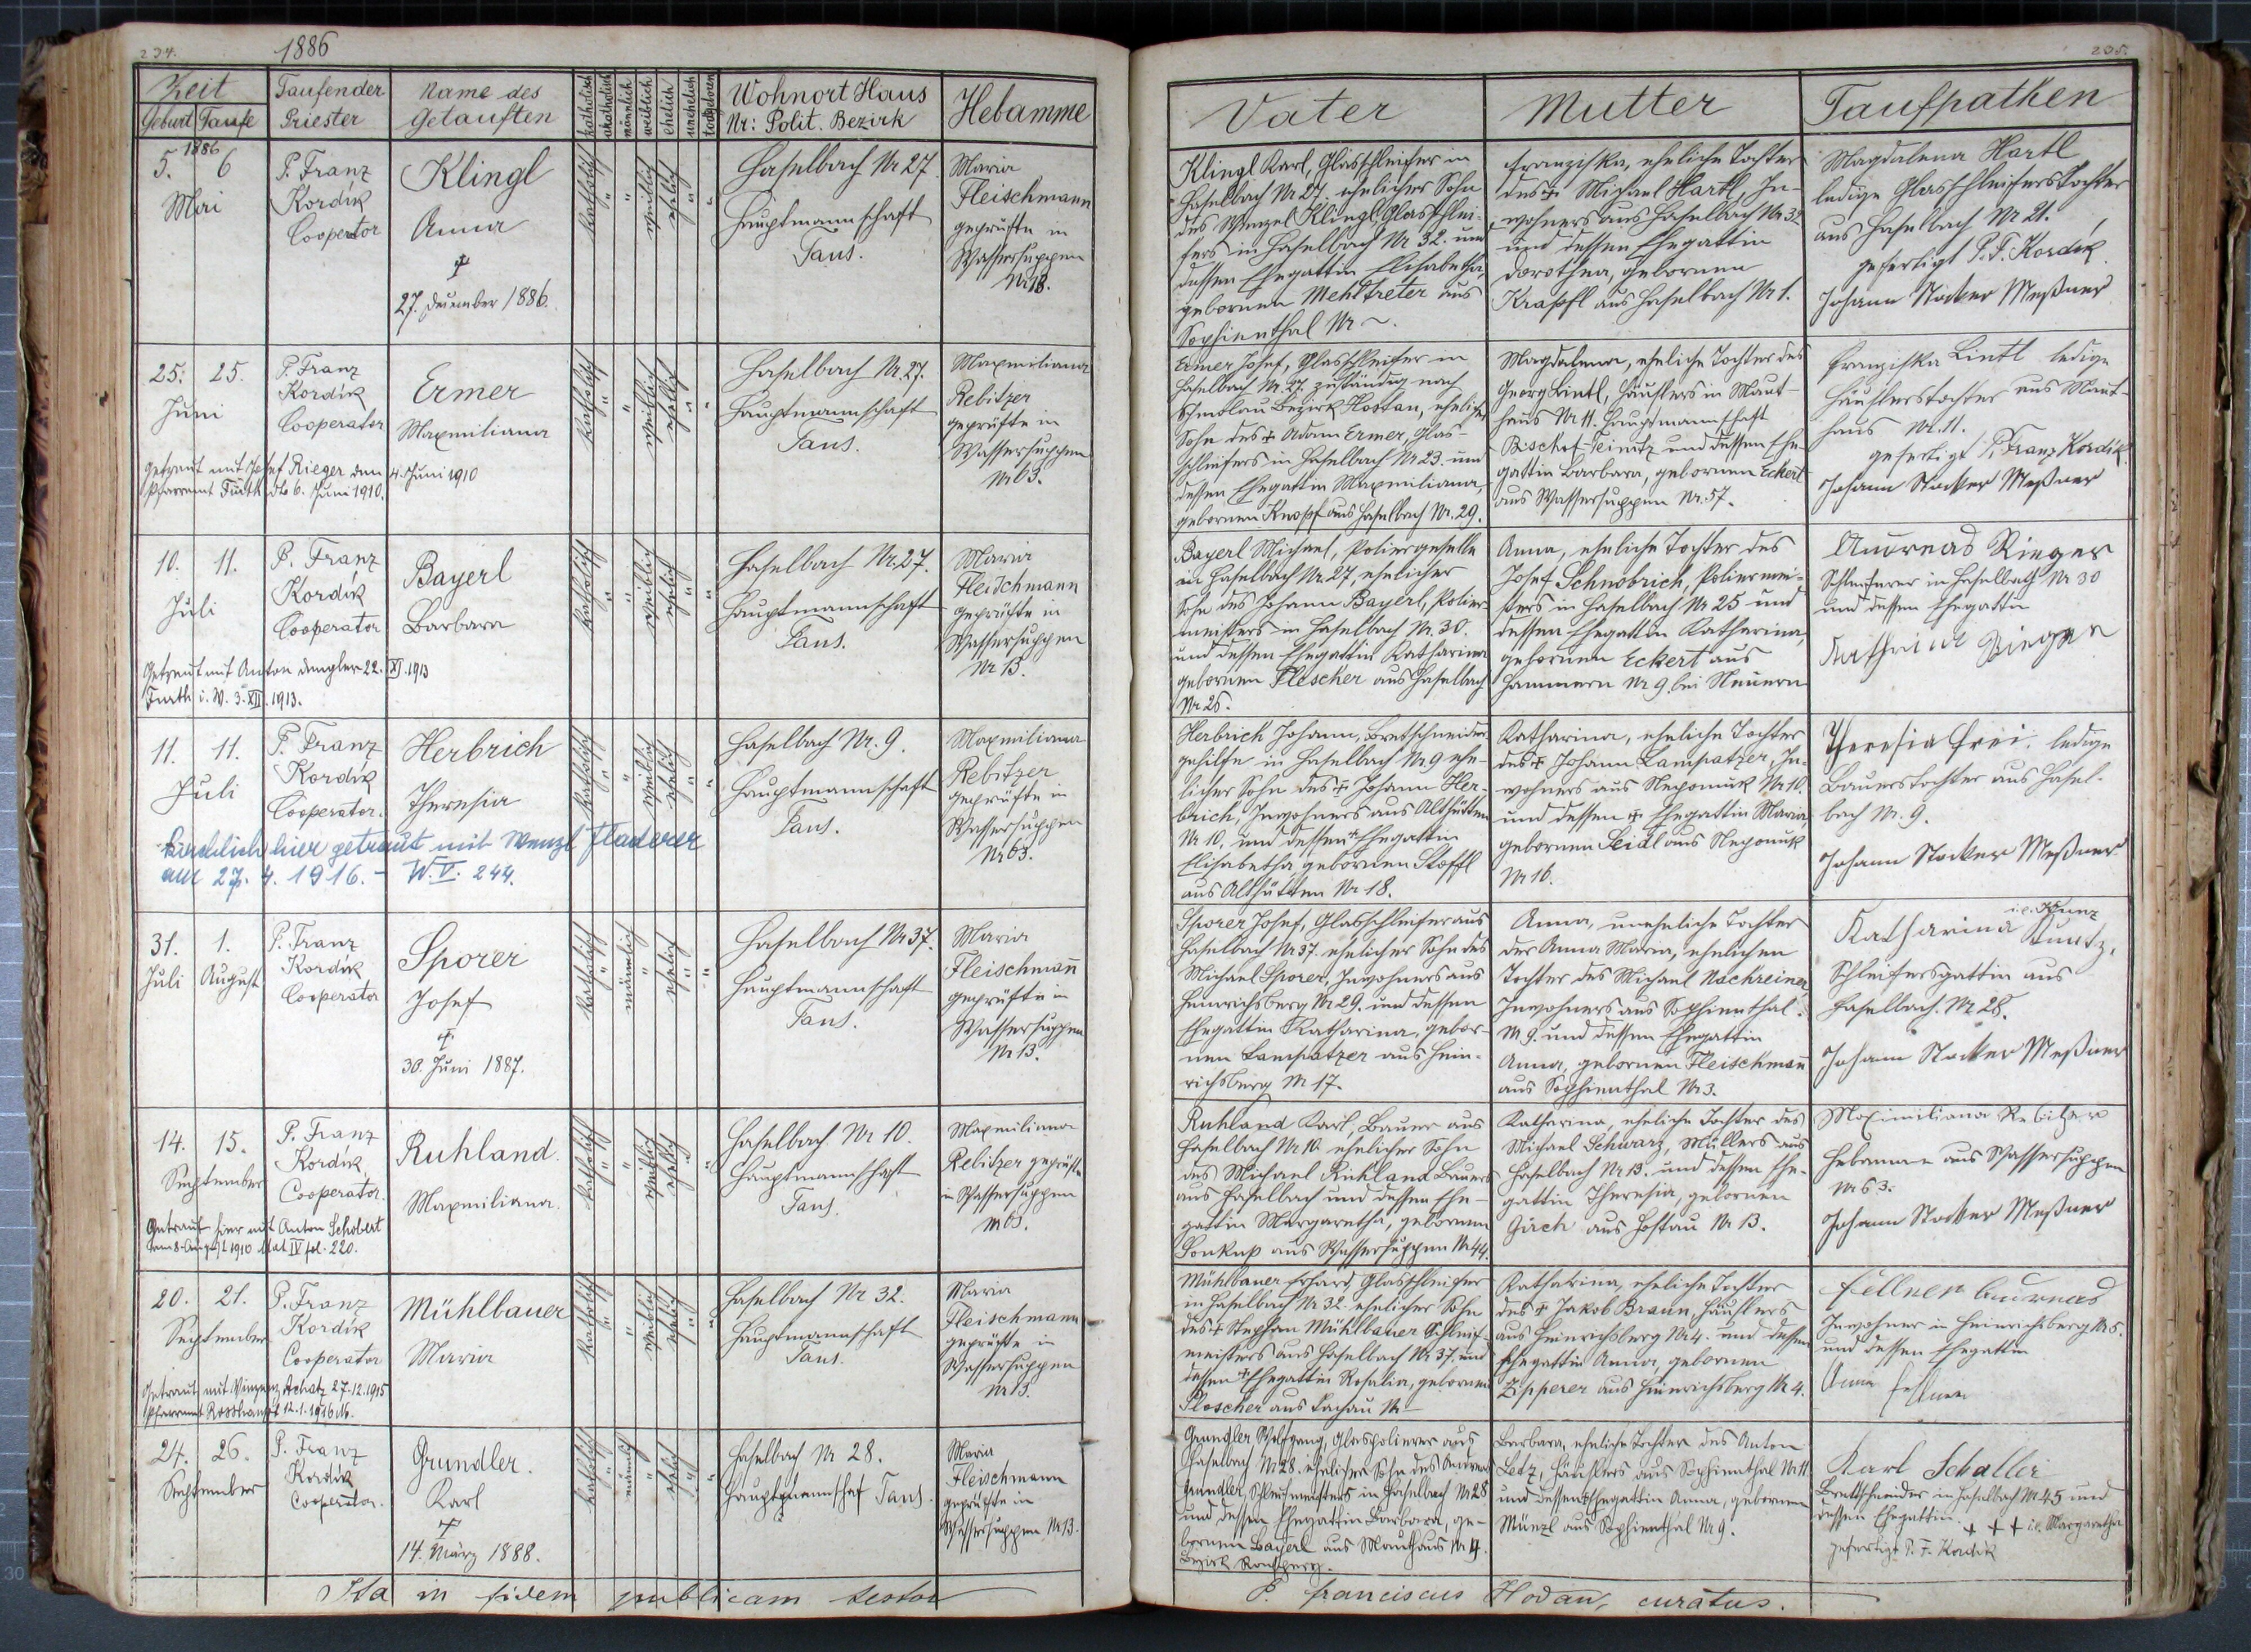 234.
1886
Zeit
Geburt Taufe
Taufender Priester
Name des Getauften
katholisch
akatholisch
männlich
weiblich
ehelich
unehelich
todtgeboren
Wohnort Haus Nr: Polit. Bezirk
Hebamme
1886
5. 6
Mai
P. Franz
Kordík
Cooperator
Klingl
Anna
†
27. December 1886.
katholisch
"
"
weiblich
ehelich
"
"
Haselbach Nr 27.
Hauptmannschaft
Taus.
Maria
Fleischmann
geprüfte in
Wassersuppen
Nr 13.
25. 25.
Juni
P. Franz
Kordík
Cooperator
Ermer
Maxmiliana
Getraut mit Josef Rieger den 4. Juni 1910
Pfarramt Furth dto 6. Juni 1910.
katholisch
"
"
weiblich
ehelich
"
"
Haselbach Nr. 27.
Hauptmannschaft
Taus.
Maxmiliana
Rebitzer
geprüfte in
Wassersuppen
Nr 63.
10. 11.
Juli
P. Franz
Kordík
Cooperator
Bayerl
Barbara
Getraut mit Anton Dengler 22. XI. 1913
Furth i. W. 3. XII. 1913.
katholisch
"
"
weiblich
ehelich
"
"
Haselbach Nr. 27.
Hauptmannschaft
Taus.
Maria
Fleischmann
geprüfte in
Wassersuppen
Nr 13.
11. 11.
Juli
P. Franz
Kordík
Cooperator.
Herbrich
Theresia
kirchlich hier getraut mit Wenzl Fladerer
am 27. 4. 1916. - W. V. 244.
katholisch
"
"
weiblich
ehelich
"
"
Haselbach Nr. 9.
Hauptmannschaft
Taus.
Maxmiliana
Rebitzer
geprüfte in
Wassersuppen
Nr 63.
31. 1.
Juli August
P. Franz
Kordík
Cooperator
Sporer
Josef
†
30. Juni 1887.
katholisch
"
männlich
"
ehelich
"
"
Haselbach Nr 37.
Hauptmannschaft
Taus.
Maria
Fleischmann
geprüfte in
Wassersuppen
Nr 13.
14. 15.
September
P. Franz
Kordík
Cooperator.
Ruhland
Maxmiliana.
Getraut hier mit Anton Schobert
am 8. August 1910 Mat IV fol. 220.
katholisch
"
"
weiblich
ehelich
"
"
Haselbach Nr 10.
Hauptmannschaft
Taus.
Maxmiliana
Rebitzer geprüfte
in Wassersuppen
Nr 63.
20. 21.
September
P. Franz
Kordík
Cooperator
Mühlbauer
Maria
Getraut mit Vinzenz Achatz 27.12.1915
Pfarramt Rosshaupt 12.1.1916
katholisch
"
"
weiblich
ehelich
"
"
Haselbach Nr 32.
Hauptmannschaft
Taus.
Maria
Fleischmann
geprüfte in
Wassersuppen
Nr 13.
24. 26.
September
P. Franz
Kordík
Cooperator.
Grundler.
Karl
†
14. März 1888.
katholisch
"
männlich
"
ehelich
"
"
Haselbach Nr 28.
Hauptmannschaf Taus.
Maria
Fleischmann
geprüfte in
Wassersuppen Nr 13.
Ita in fidem publicam testor
235.
Vater
Mutter
Taufpathen
Klingl Karl, Glasschleifer in
Haselbach Nr 27, ehelicher Sohn
des Wenzel Klingl, Glasschlei-
fers in Haselbach Nr 32. und
dessen Ehegattin Elisabetha,
gebornen Mehltreter aus
Sophienthal Nr ~.
Franziska, eheliche Tochter
des † Michael Hartl, In-
wohners aus Haselbach Nr 32
und dessen Ehegattin
Dorothea, gebornen
Krapfl aus Haselbach Nr 1.
Magdalena Hartl
ledige Glasschleiferstochter
aus Haselbach Nr 21.
gefertigt P. F. Kordík.
Johann Stocker Meßner
Ermer Josef, Glasschleifer in
Haselbach Nr 27. zuständig nach
Schmolau Bezirk Hostau, ehelicher
Sohn des † Adam Ermer, Glas-
schleifers in Haselbach Nr 23. und
dessen Ehegattin Maxmiliana,
gebornen Knopf aus Haselbach Nr. 29.
Magdalena, eheliche Tochter des
Georg Lintl, Häuslers in Maut-
haus Nr 11. Hauptmannschaft
Bischof-Teinitz und dessen Ehe-
gattin Barbara, gebornen Eckert
aus Wassersuppen Nr. 57.
Franziska Lintl ledige
Häuslerstochter aus Maut-
haus Nr. 11.
gefertigt P. Franz Kordík.
Johann Stocker Meßner
Bayerl Michael, Poliergeselle
in Haselbach Nr. 27, ehelicher
Sohn des Johann Bayerl, Polier-
meisters in Haselbach Nr. 30.
und dessen Ehegattin Katharina
gebornen Flescher aus Haselbach
Nr 26.
Anna, eheliche Tochter des
Josef Schnobrich, Poliermei-
sters in Haselbach Nr 25 und
dessen Ehegattin Katharina,
gebornen Eckert aus
Hammern Nr 9. bei Neuern
Andreas Rieger
Schleiferer in Haselbach Nr 30
und dessen Ehegattin
Katharina Rieger
Herbrich Johann, Brettschneider-
gehilfe in Haselbach Nr 9 ehe-
licher Sohn des † Johann Her-
brich, Inwohners aus Althütten
Nr 10. und dessen † Ehegattin
Elisabetha, gebornen Stoffl
aus Althütten Nr 18.
Katharina, eheliche Tochter
des † Johann Lampatzer, In-
wohners aus Nepomuk Nr 10.
und dessen † Ehegattin Maria,
gebornen Seidl aus Nepomuk
Nr 16.
Theresia Frei, ledige
Bauerstochter aus Hasel-
bach Nr. 9.
Johann Stocker Meßner
Sporer Josef, Glasschleifer aus
Haselbach Nr 37. ehelicher Sohn des
Michael Sporer, Inwohners aus
Heinrichsberg Nr 29. und dessen
Ehegattin Katharina, gebor-
nen Lampatzer aus Hein-
richsberg Nr 17.
Anna, uneheliche Tochter
der Anna Maria, ehelichen
Tochter des Michael Nachreiner
Inwohners aus Sophienthal
Nr 9. und dessen Ehegattin
Anna, gebornen Fleischmann
aus Sophienthal Nr 3.
i.e. Kunz
Katharina Kuntz,
Schleifersgattin aus
Haselbach Nr 28.
Johann Stocker Meßner
Ruhland Karl, Bauer aus
Haselbach Nr 10. ehelicher Sohn
des Michael Ruhland Bauers
aus Haselbach und dessen Ehe-
gattin Margaretha, gebornen
aus Wassersuppen Nr 44.
Katharina, eheliche Tochter des
Michael Schwarz, Müllers aus
Haselbach Nr 13. und dessen Ehe-
gattin Theresia, gebornen
Girch aus Hostau Nr 13.
Maximiliana Rebitzer
Hebamme aus Wassersuppen
Nr 63.
Johann Stocker Meßner
Mühlbauer Erhard, Glasschleifer
in Haselbach Nr 32. ehelicher Sohn
des † Stephan Mühlbauer Schleif-
meisters aus Haselbach Nr 37. und
dessen † Ehegattin Rosalia, gebornen
Ploscher aus Nr -
Katharina, eheliche Tochter
des † Jakob Braun, Häuslers
aus Heinrichsberg Nr 4. und dessen
Ehegattin Anna, gebornen
Zipperer aus Heinrichsberg Nr 4.
Fellner Andreas
Inwohner in Heinrichsberg Nr 5.
und dessen Ehegattin
Anna Fellner
Grundler Wolfgang, Glaspolierer aus
Haselbach Nr 28. ehelicher Sohn des Andreas
Grundler, Schleifmeisters in Haselbach Nr 28
und dessen Ehegattin Barbara, ge-
bornen Bayerl aus Mauthaus Nr 4.
Bezirk Ronsperg.
Barbara, eheliche Tochter des Anton
Letz, Häuslers aus Sophienthal Nr 11
und dessen Ehegattin Anna, gebornen
Münzl aus Sophienthal Nr 9.
Karl Schaller
Brettschneider in Haselbach Nr 45 und
dessen Ehegattin. + + + i.e. Margaretha
gefertigt P. F. Kordík
P. Franciscus Hodan, curatus.